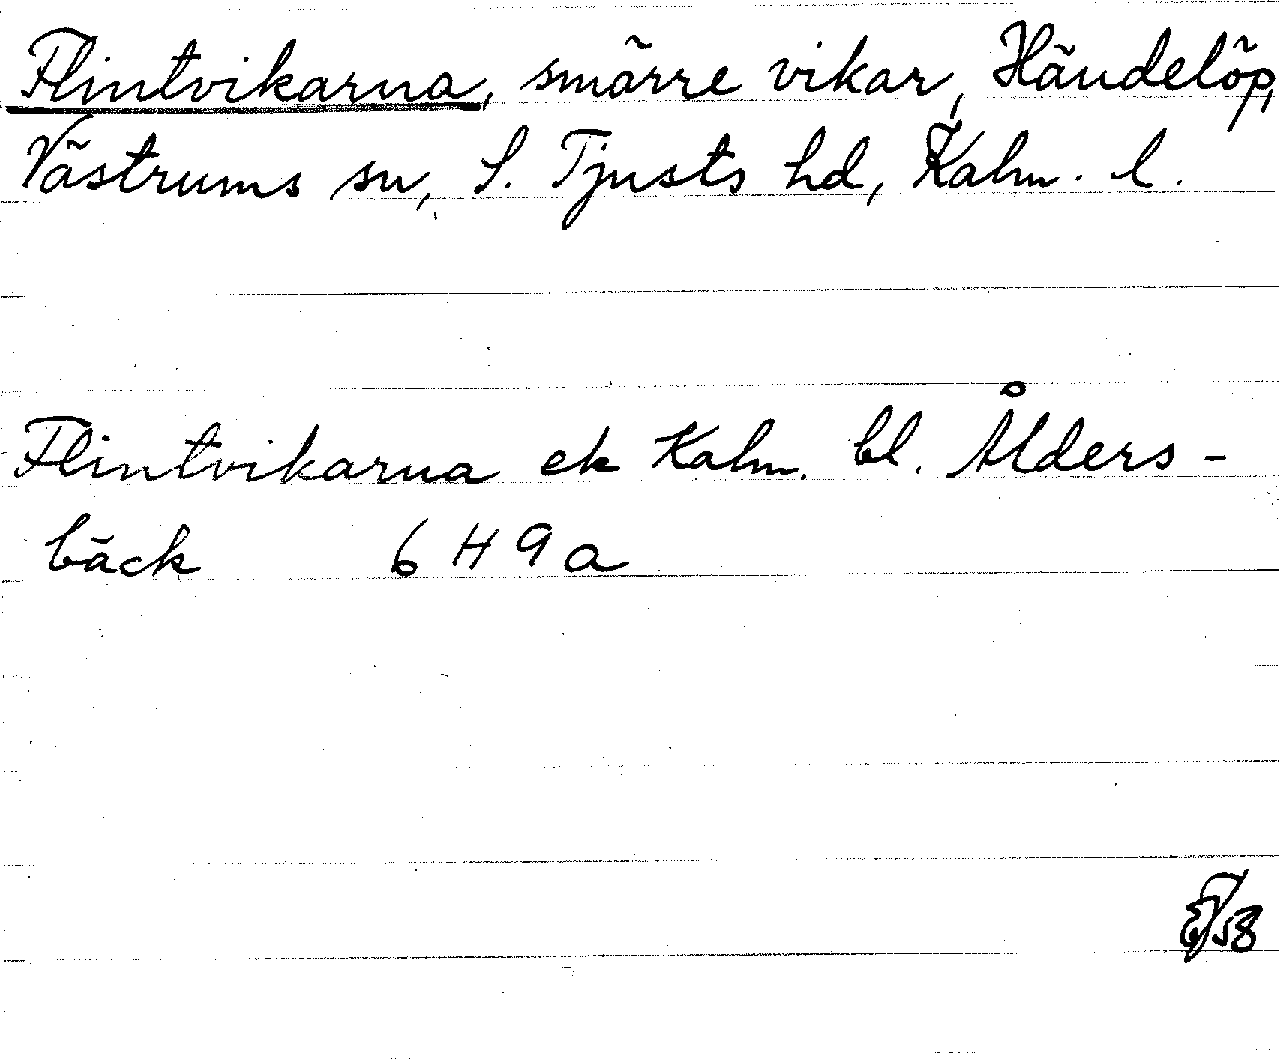 Flintvikarna, smärre vikar, Händelöp,
Västrums sn, S. Tjusts hd, Kalm. l.
Flintvikarna ek Kalm. bl. Ålders-
bäck 6 H 9 a
58